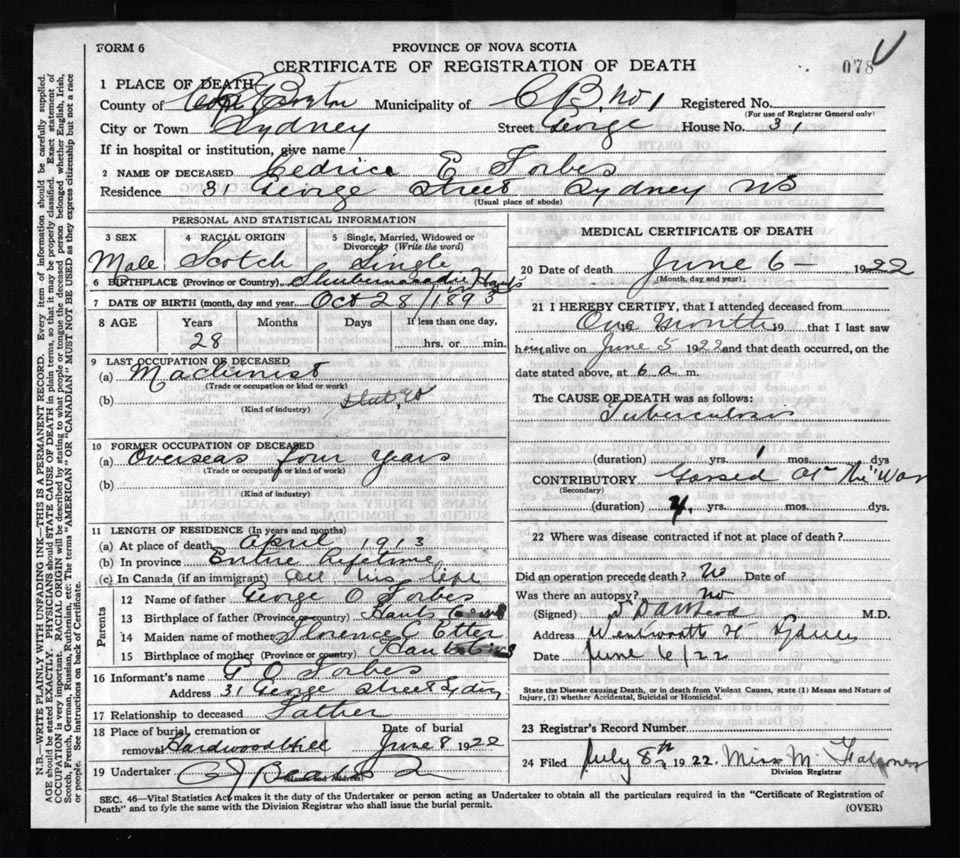 FORM 6
PROVINCE OF NOVA SCOTIA
CERTIFICATE OF REGISTRATION OF DEATH
078
1 PLACE OF DEATH
County of Cape Breton Municipality of C B. No 1 Registered No.
(For use of Registrar General only)
City or Town Sydney Street George House No. 31
If in hospital or institution, give name
2 NAME OF DECEASED Cedrice E Forbes
Residence 31 George Street Sydney NS
(Usual place of abode)
PERSONAL AND STATISTICAL INFORMATION
3 SEX 4 RACIAL ORIGIN 5 Single, Married, Widowed or Divorced (Write the word)
Male Scotch Single
6 BIRTHPLACE (Province or Country) Shubenacadie Hants
7 DATE OF BIRTH (month, day and year) Oct 28/1893
8 AGE Years Months Days If less than one day,
28 hrs. or min.
9 LAST OCCUPATION OF DECEASED
(a) Machinist
(Trade or occupation or kind or work)
(b)
(Kind of industry)
10 FORMER OCCUPATION OF DECEASED
(a) Overseas four years
(Trade or occupation or kind of work)
(b)
(Kind of industry)
11 LENGTH OF RESIDENCE (In years and months)
(a) At place of death April 1913
(b) In province Entire lifetime
(c) In Canada (if an immigrant) all his life
Parents
12 Name of father George O Forbes
13 Birthplace of father (Province or country) Hants Co NS
14 Maiden name of mother Florence E Etter
15 Birthplace of mother (Province or country) Hants Co NS
16 Informant's name G O Forbes
Address 31 George Street Sydney
17 Relationship to deceased Father
18 Place of burial, cremation or removal Hardwood Hill Date of burial June 8 1922
19 Undertaker
MEDICAL CERTIFICATE OF DEATH
20 Date of death June 6 - 1922
(Month, day and year)
21 I HEREBY CERTIFY, that I attended deceased from
One Month 19 that I last saw
him alive on June 5 1922 and that death occurred, on the
date stated above, at 6 a m.
The CAUSE OF DEATH was as follows:
Tuberculosis
(duration) yrs. 1 mos. dys
CONTRIBUTORY Gassed at the "War
(Secondary)
(duration) 4 yrs. mos. dys.
22 Where was disease contracted if not at place of death?
Did an operation precede death? No Date of
Was there an autopsy? No
(Signed) M.D.
Address Wentworth St Sydney
Date June 6/22
State the Disease causing Death, or in death from Violent Causes, state (1) Means and Nature of Injury, (2) whether Accidental, Suicidal or Homicidal.
23 Registrar's Record Number
24 Filed July 8th 1922. Miss M
Division Registrar
SEC. 46—Vital Statistics Act makes it the duty of the Undertaker or person acting as Undertaker to obtain all the particulars required in the "Certificate of Registration of
Death" and to fyle the same with the Division Registrar who shall issue the burial permit.
(OVER)
N.B.—WRITE PLAINLY WITH UNFADING INK—THIS IS A PERMANENT RECORD. Every item of information should be carefully supplied.
AGE should be stated EXACTLY. PHYSICIANS should STATE CAUSE OF DEATH in plain terms, so that it may be properly classified. Exact statement of
OCCUPATION is very important. RACIAL ORIGIN will be described by stating to what people or tongue the deceased person belonged whether English, Irish,
Scotch, French, German, Russian, Ruthenian, etc. The terms "AMERICAN" or "CANADIAN" MUST NOT BE USED as they express citizenship but not a race
or people. See instructions on back of Certificate.